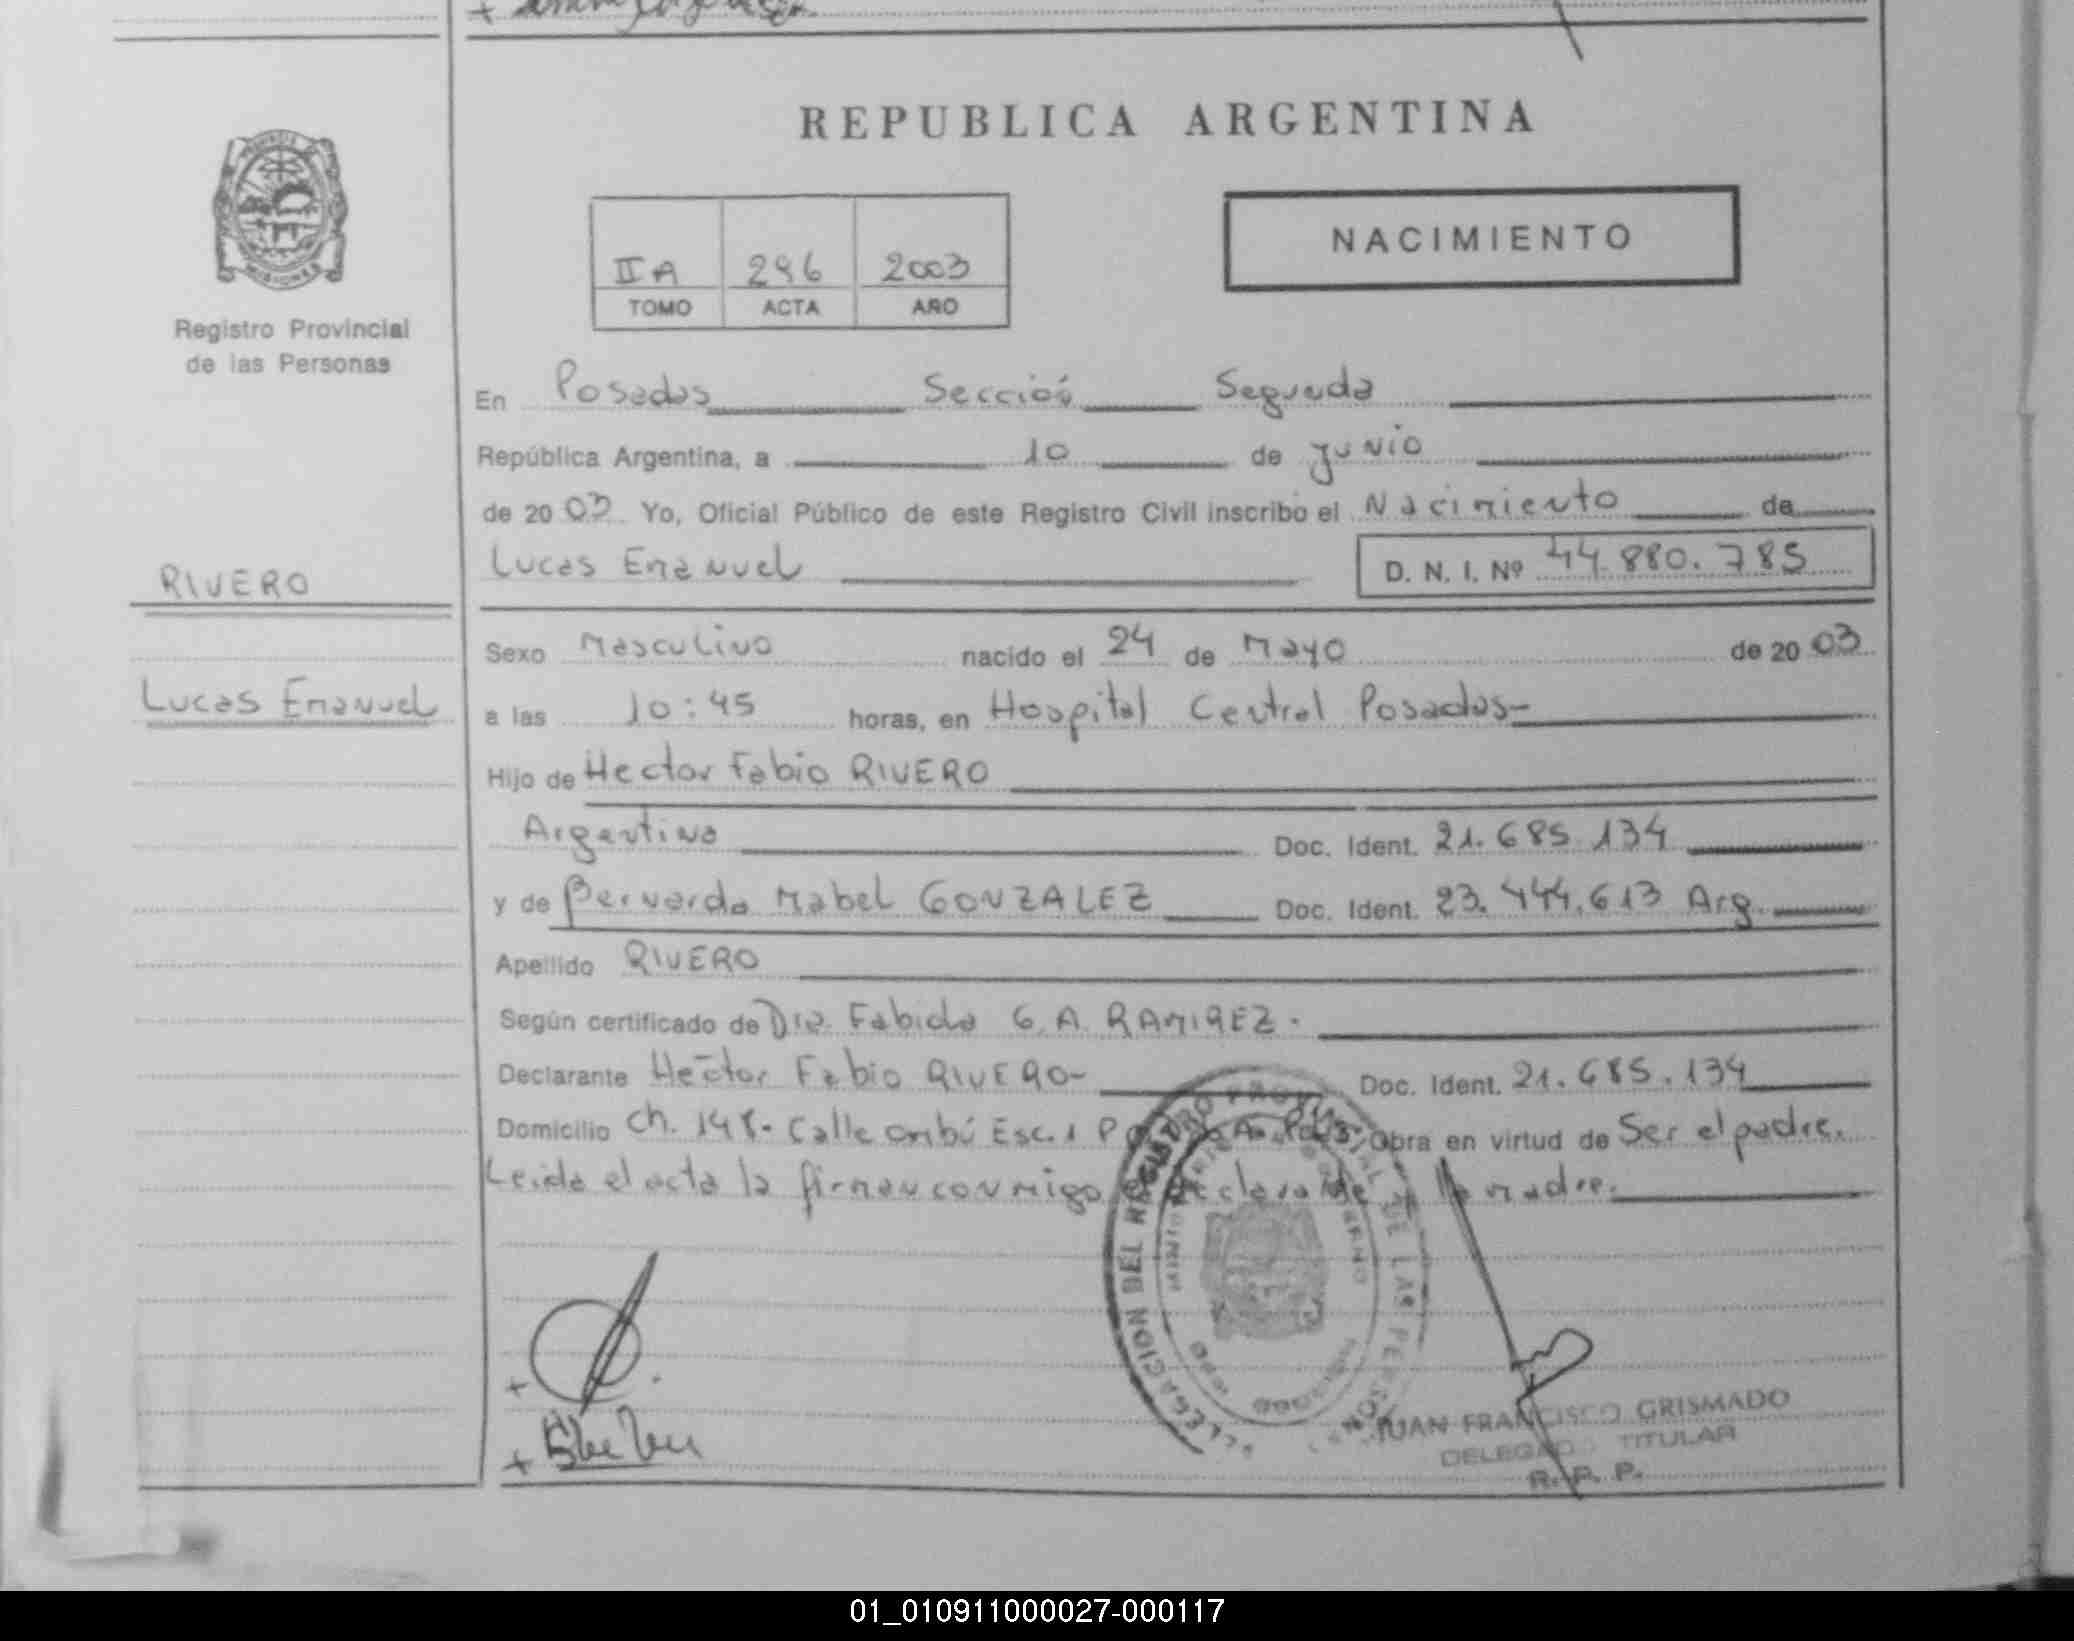 REPUBLICA ARGENTINA
PROVINCIA DE
MISIONES
Registro Provincial
de las Personas
II A 296 2003
TOMO ACTA AÑO
NACIMIENTO
En Posadas Sección Segunda
República Argentina, a 10 de Junio
de 2003 Yo, Oficial Público de este Registro Civil inscribo el Nacimiento de
RIVERO
Lucas Emanuel D. N. I. Nº 44.880.785
Sexo Masculino nacido el 24 de Mayo de 2003
Lucas Emanuel
a las 10:45 horas, en Hospital Central Posadas-
Hijo de Hector Fabio RIVERO
Argentino Doc. Ident. 21.685.134
y de Bernarda Mabel GONZALEZ Doc. Ident. 23.444.613 Arg.
Apellido RIVERO
Según certificado de Dra. Fabiola G. A. RAMIREZ.
Declarante Hector Fabio RIVERO- Doc. Ident. 21.685.134
Domicilio Ch. 148. Calle ombú Esc. 1 Obra en virtud de Ser el padre.
Leida el acta la firman conmigo declarante y la madre.
DELEGACION DEL REGISTRO PROVINCIAL DE LAS PERSONAS
JUAN FRANCISCO GRISMADO
DELEGADO TITULAR
R. P. P.
01_010911000027-000117